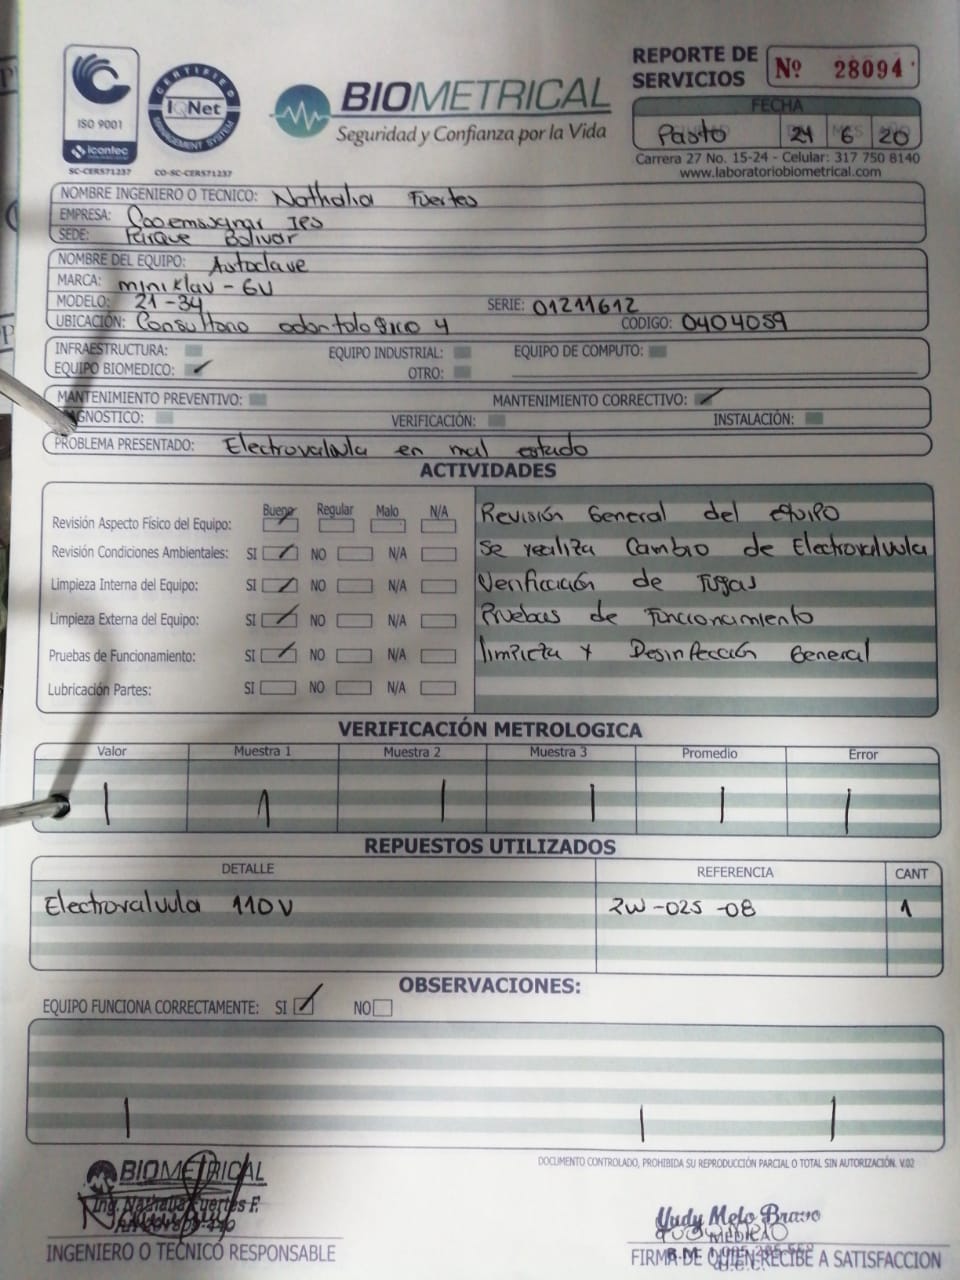 ISO 9001
icontec
SC-CER571237
CERTIFIED
IQNet
MANAGEMENT SYSTEM
CO-SC-CER571237
BIOMETRICAL
Seguridad y Confianza por la Vida
REPORTE DE SERVICIOS
Nº 28094
FECHA
Pasto 21 6 20
Carrera 27 No. 15-24 - Celular: 317 750 8140
www.laboratoriobiometrical.com
NOMBRE INGENIERO O TECNICO: Nathalia Fuertes
EMPRESA: Coemssanar IPS
SEDE: Parque Bolivar
NOMBRE DEL EQUIPO: Autoclave
MARCA: miniklav - 6V
MODELO: 21-34 SERIE: 01211612
UBICACIÓN: Consultorio odontologico 4 CÓDIGO: 0404059
INFRAESTRUCTURA: EQUIPO INDUSTRIAL: EQUIPO DE COMPUTO:
EQUIPO BIOMEDICO: ✓ OTRO:
MANTENIMIENTO PREVENTIVO: MANTENIMIENTO CORRECTIVO: ✓
AGNOSTICO: VERIFICACIÓN: INSTALACIÓN:
PROBLEMA PRESENTADO: Electrovalvula en mal estado
ACTIVIDADES
Bueno Regular Malo N/A
Revisión Aspecto Físico del Equipo:
Revisión Condiciones Ambientales: SI NO N/A
Limpieza Interna del Equipo: SI NO N/A
Limpieza Externa del Equipo: SI NO N/A
Pruebas de Funcionamiento: SI NO N/A
Lubricación Partes: SI NO N/A
Revisión General del equipo
se realiza Cambio de Electrovalvula
Verificación de Fugas
Pruebas de Funcionamiento
limpieza y Desinfección General
VERIFICACIÓN METROLOGICA
Valor Muestra 1 Muestra 2 Muestra 3 Promedio Error
REPUESTOS UTILIZADOS
DETALLE REFERENCIA CANT
Electrovalvula 110V 2W-025-08 1
OBSERVACIONES:
EQUIPO FUNCIONA CORRECTAMENTE: SI NO
DOCUMENTO CONTROLADO, PROHIBIDA SU REPRODUCCIÓN PARCIAL O TOTAL SIN AUTORIZACIÓN. V.02
BIOMETRICAL
Ing. Nathalia Fuertes F.
INGENIERO O TECNICO RESPONSABLE
Yudy Melo Bravo
MEDICA
FIRMA DE QUIEN RECIBE A SATISFACCION